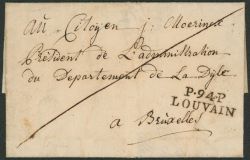 Au Citoyen J. Moerinckx
Président de L'administration
du Departement de La Dijle
P.94.P
LOUVAIN
a Bruxelles